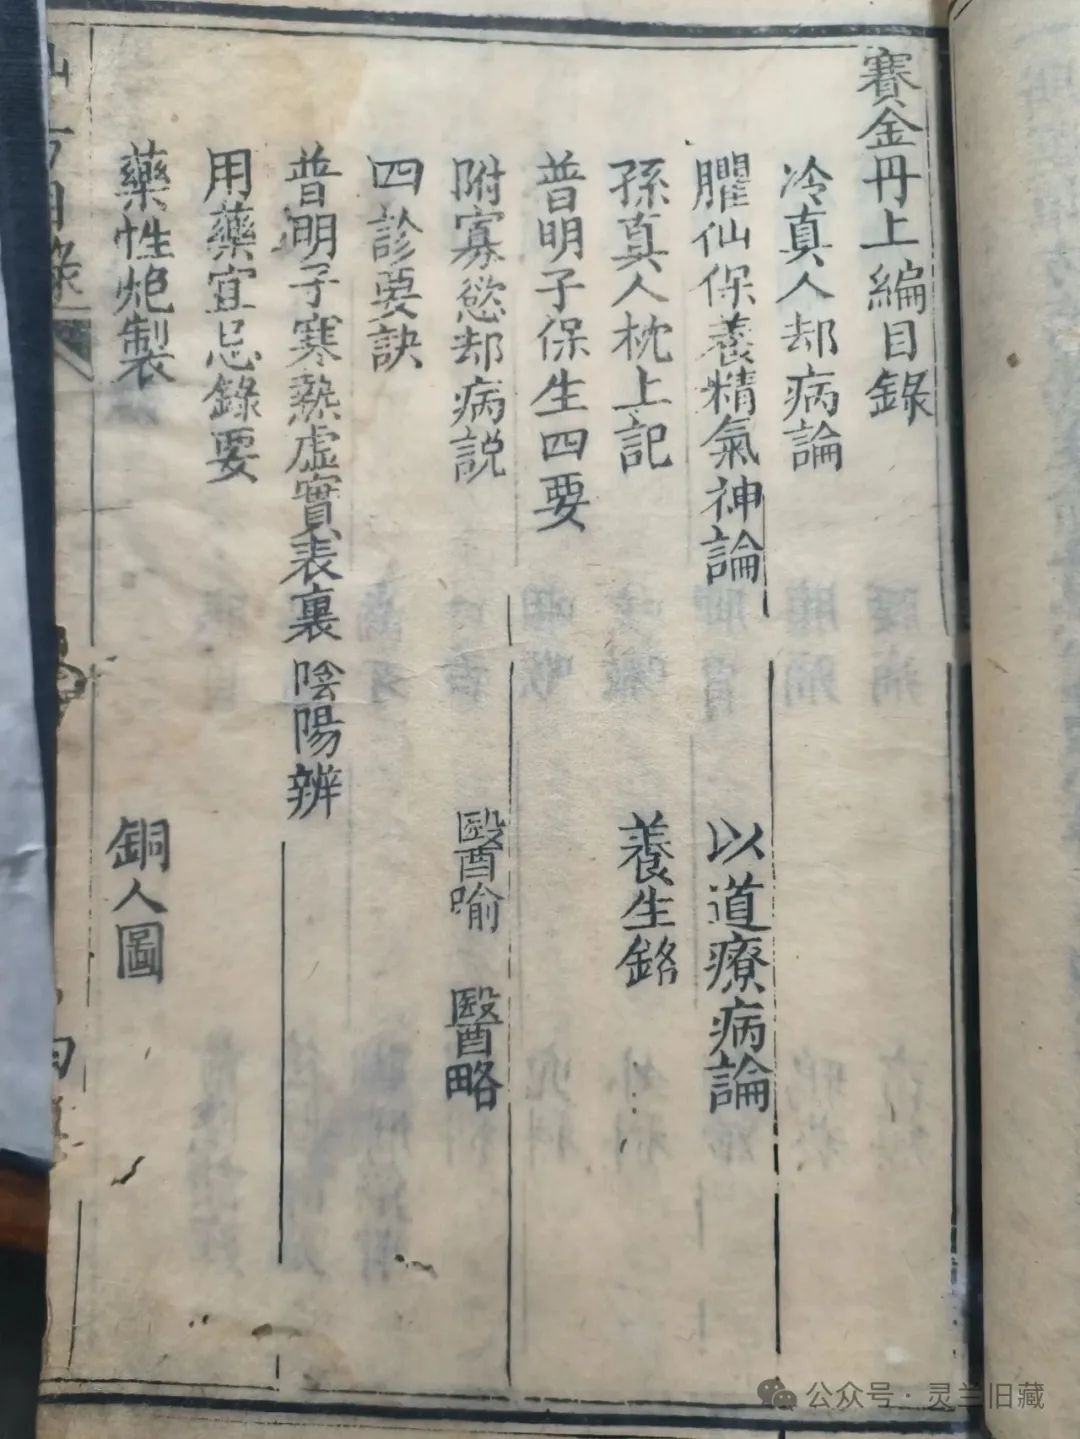 賽金丹上編目錄
冷真人却病論
臞仙保養精氣神論　以道療病論
孫真人枕上記　養生銘
普明子保生四要
附寡慾却病説　醫喻　醫略
四診要訣
普明子寒熱虛實表裏陰陽辨
用藥宜忌錄要
藥性炮製　銅人圖
公众号·灵兰旧藏